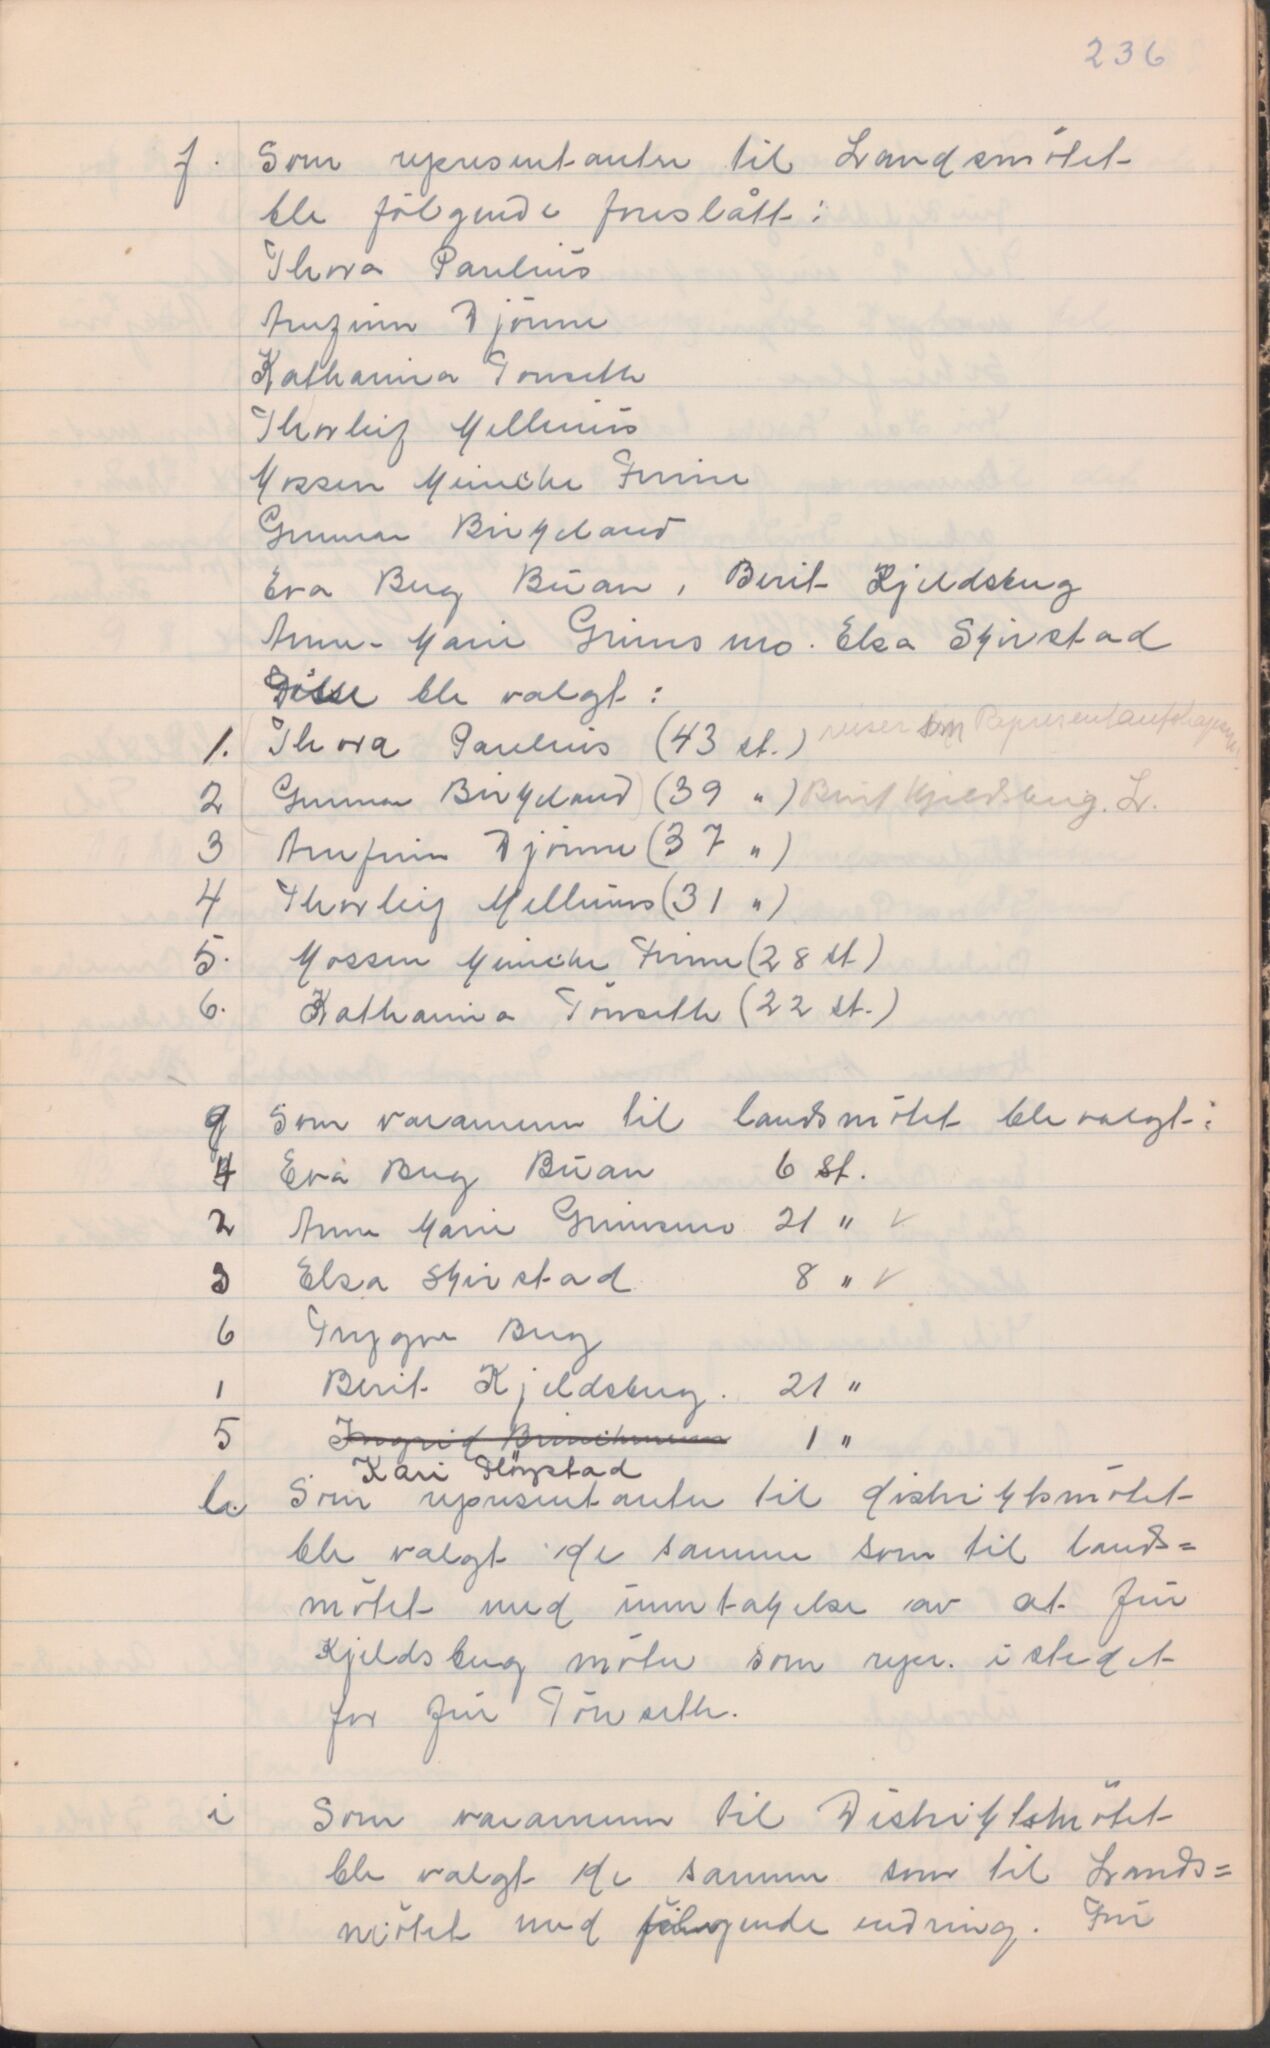 236
f. Som representanter til Landsmötet
ble fölgende foreslått:
Thora Paulius
Arnfinn Djönne
Katharina Tönseth
Thorleif Melluns
Mossen Meinche Finne
Gunnar Birkeland
Eva Berg Buan, Berit Kjeldsberg
Anne-Marie Grimsmo. Elsa Skirstad
Disse ble valgt:
1. Thora Paulius (43 st.) reiser som Representantskapsm.
2 Gunnar Birkeland (39 ") Berit Kjeldsberg. L.
3 Arnfinn Djönne (37 ")
4 Thorleif Melluns (31 ")
5. Mossen Meinche Finne (28 st)
6. Katharina Tönseth (22 st.)
g Som varamenn til landsmötet ble valgt:
4 Eva Berg Buan 6 st.
2 Anne Marie Grimsmo 21 " v
3 Elsa Skirstad 8 " v
6 Trygve Berg
1 Berit Kjeldsberg. 21 "
5 Ingrid Brinchmann 1 "
Kari Högstad
h. Som representanter til distriktsmötet
ble valgt de samme som til lands=
mötet med unntakelse av at fru
Kjeldsberg möter som repr. istedet
for fru Tönseth.
i Som varamenn til Distriktsmötet
ble valgt de samme som til Lands=
mötet med fölgende endring. Fru